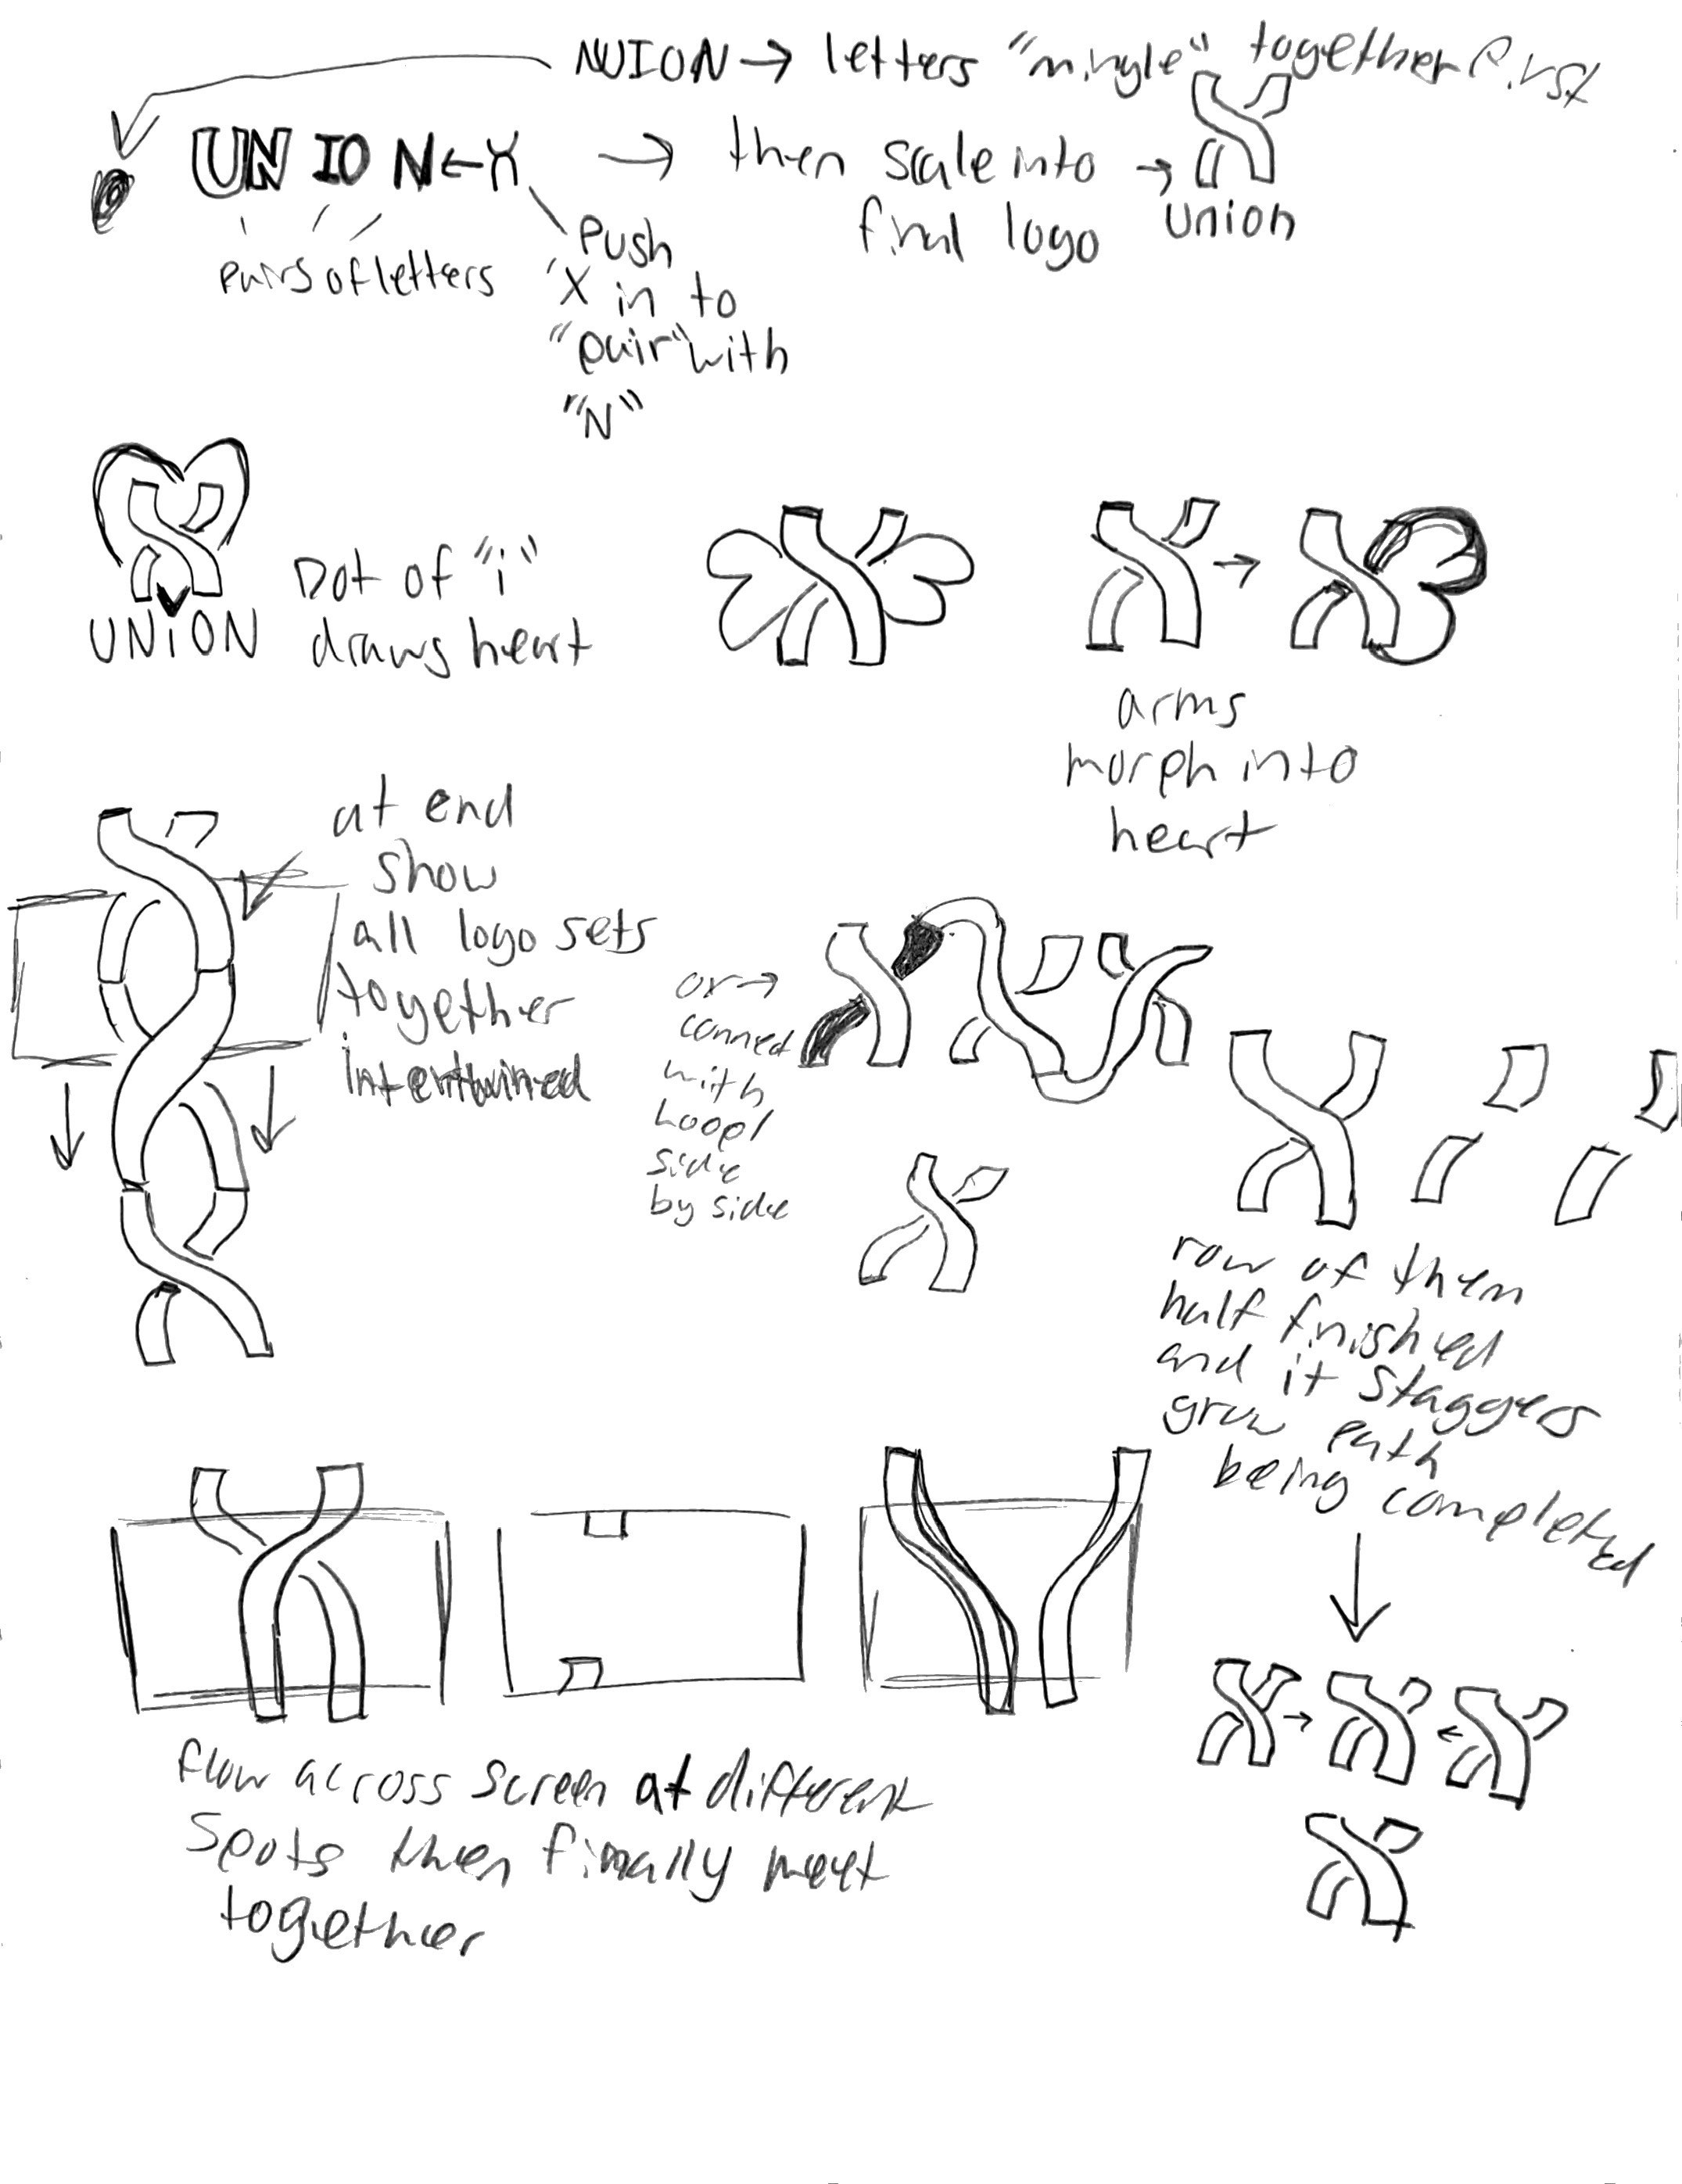 NUION → letters "mingle" together first
UN IO N ← X → then scale into →
final logo union
pairs of letters
Push
'X in to
"pair" with
"N"
Dot of "i"
UNiON draws heart
arms
morph into
heart
at end
show
all logo sets
together
intertwined
or →
connect
with
Loop/
side
by side
row of them
half finished
and it staggers
grow path
being completed
flow across screen at different
spots then finally meet
together